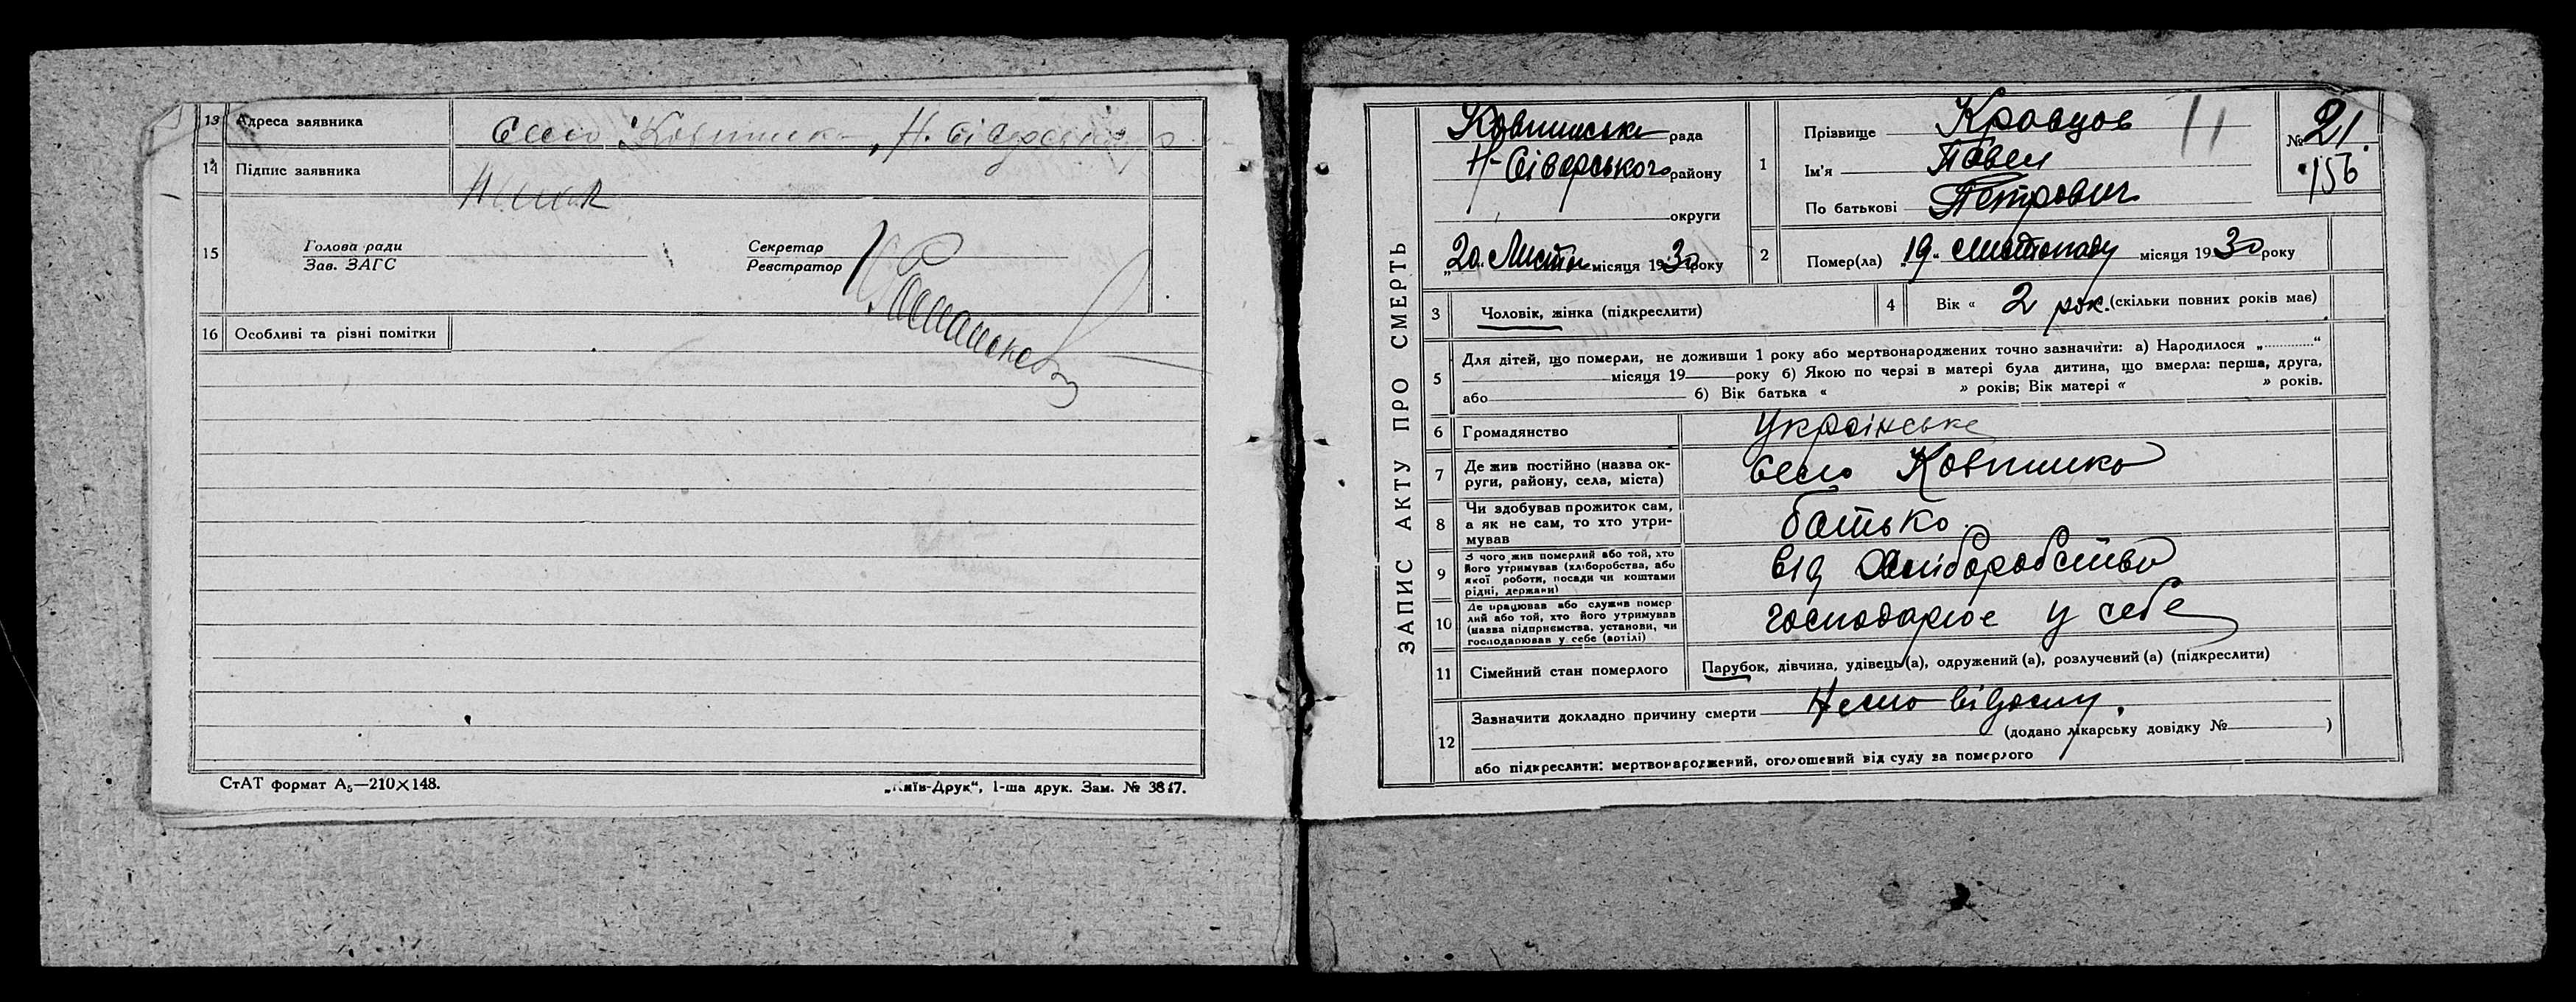 13 Адреса заявника Село Ковпинка, Н. Сіверський р
14 Підпис заявника
15 Голова ради
Зав. ЗАГС
Секретар
Реєстратор
16 Особливі та різні помітки
СтАТ формат А5—210×148.
„Київ-Друк“, 1-ша друк. Зам. № 3817.
ЗАПИС АКТУ ПРО СМЕРТЬ
Ковпинська рада
Н-Сіверського району
округи
„20“ Листоп місяця 1930 року
1 Прізвище Кравцов 11
Ім'я Павел
По батькові Петрович
№ 21.
156
2 Помер(ла) „19“ листопаду місяця 1930 року
3 Чоловік, жінка (підкреслити)
4 Вік « 2 рок. (скільки повних років має)
5 Для дітей, що померли, не доживши 1 року або мертвонароджених точно зазначити: а) Народилося „............“
місяця 19 року б) Якою по черзі в матері була дитина, що вмерла: перша, друга,
або б) Вік батька « » років; Вік матері « » років.
6 Громадянство Українське
7 Де жив постійно (назва ок-
руги, району, села, міста) Село Ковпинка
8 Чи здобував прожиток сам,
а як не сам, то хто утри-
мував батько
9 З чого жив померлий або той, хто
його утримував (хліборобства, або
якої роботи, посади чи коштами
рідні, держави) від Хліборобства
10 Де працював або служив помер-
лий або той, хто його утримував
(назва підприємства, установи, чи
господарював у себе (артілі) господарює у себе
11 Сімейний стан померлого Парубок, дівчина, удівець(а), одружений(а), розлучений(а) (підкреслити)
12 Зазначити докладно причину смерти
(додано лікарську довідку № )
або підкреслити: мертвонароджений, оголошений від суду за померлого